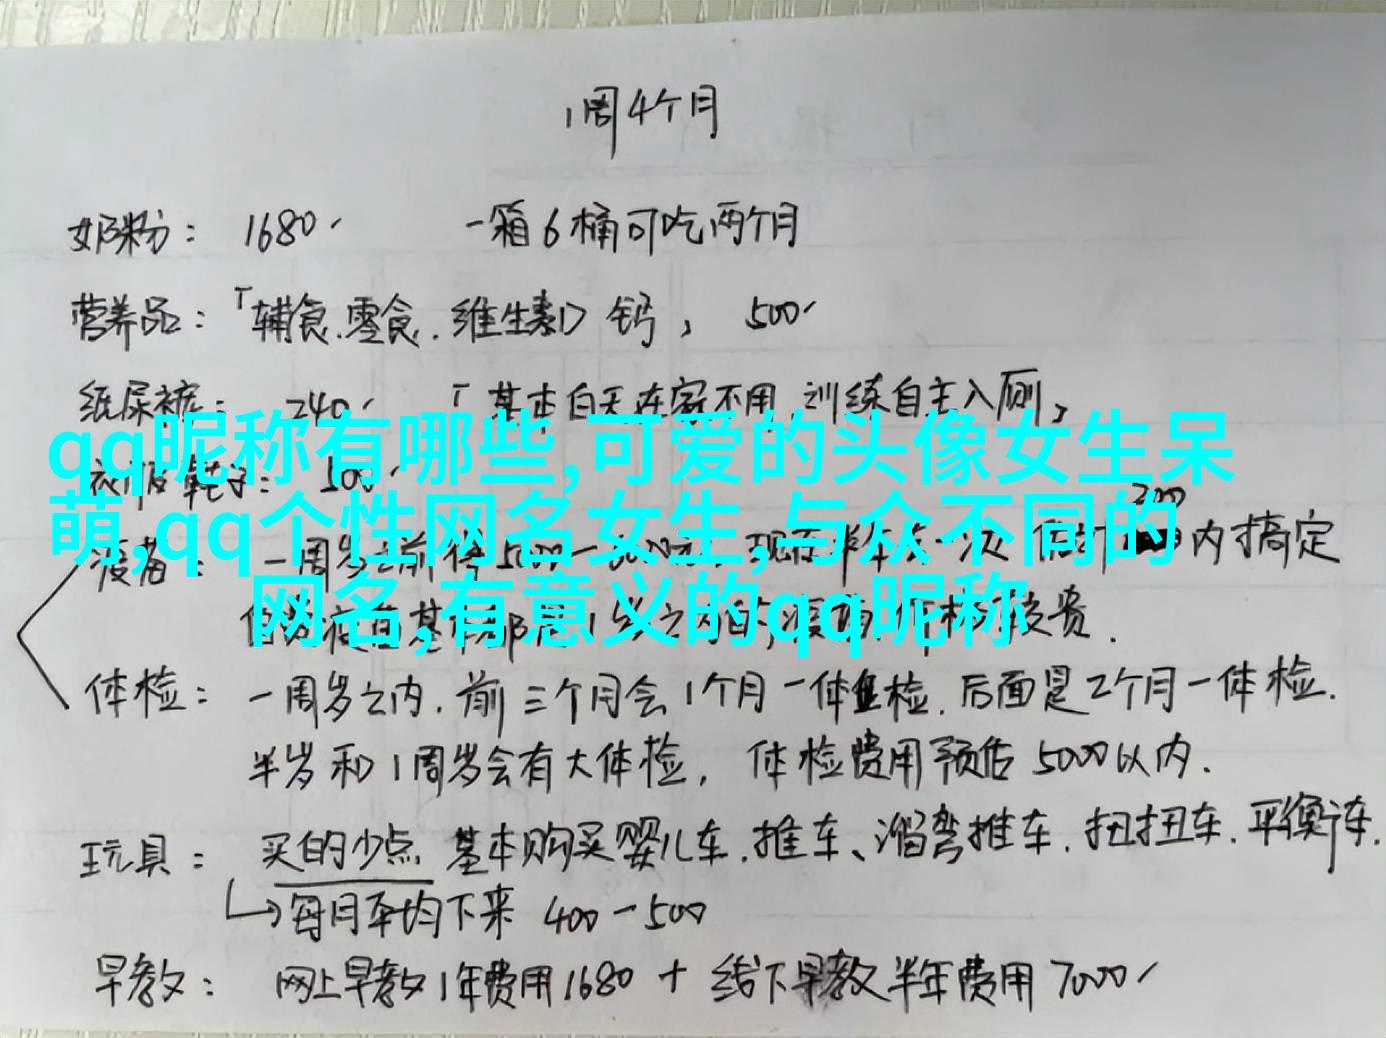 1周4个月
奶粉： 1680 一箱6桶可吃两个月
营养品：「辅食.零食.维生素D 钙」 500
纸尿裤： 240 「基本白天在家不用 训练自主入厕」
qq昵称有哪些,可爱的头像女生呆
衣服鞋子： 500
萌,qq个性网名女生,与众不同的
疫苗： 一周岁之前 内搞定
网名,有意义的qq昵称
贵.
体检： 一周岁之内.前三个月会1个月一体检.后面是2个月一体检.
半岁和1周岁会有大体检, 体检费用预估5000以内.
玩具： 买的少点 基本购买婴儿车.推车、溜弯推车.扭扭车.平衡车.
每月平均下来 400-500
早教： 网上早教1年费用1680 + 线下早教半年费用7000